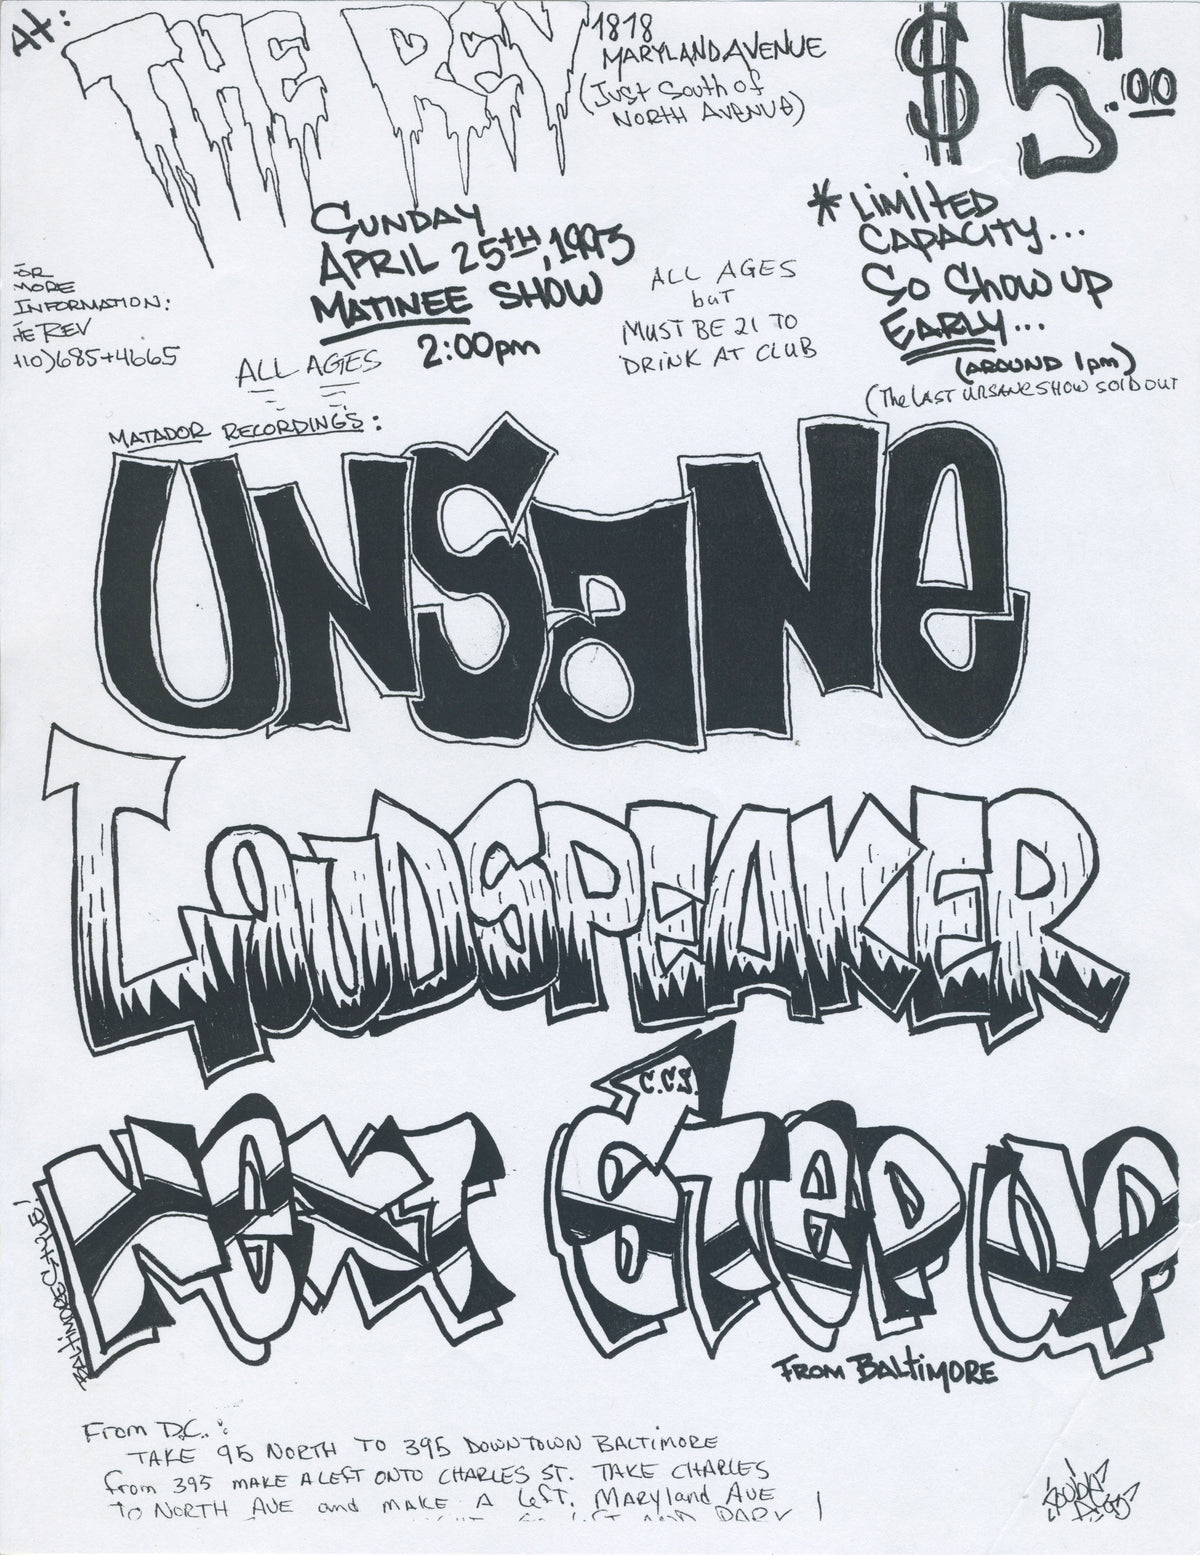 At:
THE REV
1818
MARYLAND AVENUE
(Just South of
NORTH AVENUE)
$5.00
SUNDAY
APRIL 25TH, 1993
MATINEE SHOW
2:00pm
ALL AGES
ALL AGES
but
MUST BE 21 TO
DRINK AT CLUB
* LIMITED
CAPACITY...
So Show UP
EARLY...
(AROUND 1pm)
(The LAST UNSANE SHOW SOLD OUT
OR
MORE
INFORMATION:
HE REV
410)685+4665
MATADOR RECORDINGS:
UNSANE
LOUDSPEAKER
C.C.S.
NEXT STEP UP
BALTIMORE STYLE!
FROM BALTIMORE
From D.C.:
TAKE 95 NORTH TO 395 DOWNTOWN BALTIMORE
from 395 MAKE A LEFT ONTO CHARLES ST. TAKE CHARLES
TO NORTH AVE and MAKE A Left. MARYland AVE
LEFT AND PARK !